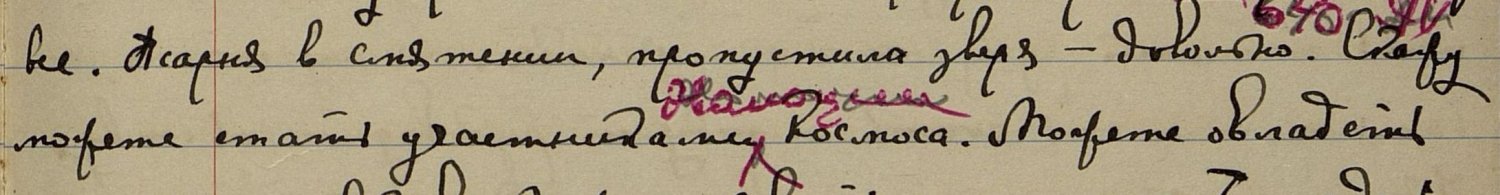 все. Псарня в смятении, пропустила зверя — довольно. Сразу
можете стать участниками Космоса. Можете овладеть